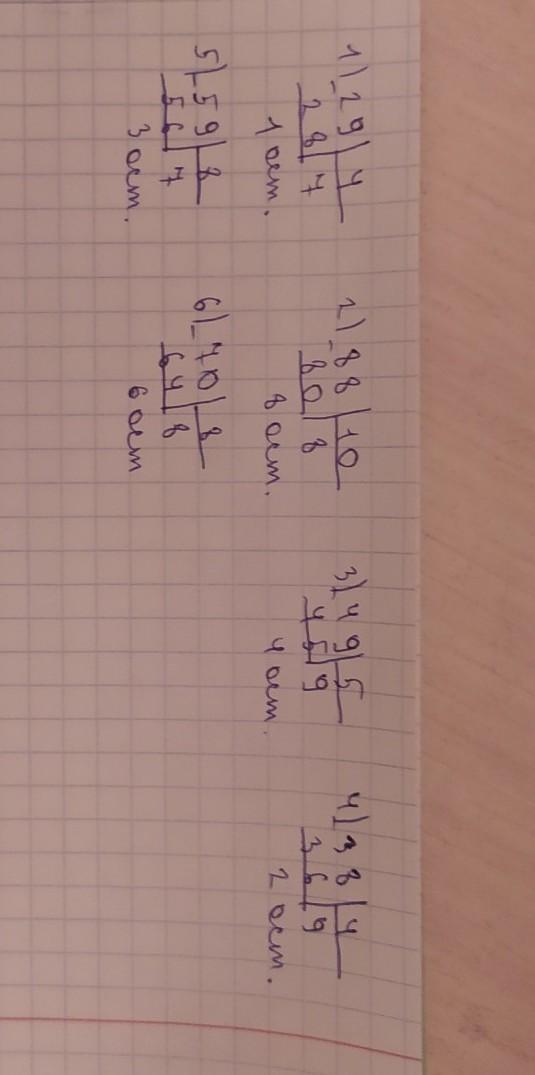 1) 29 | 4 2) 88 | 10 3) 49 | 5 4) 38 | 4
28 | 7 80 | 8 45 | 9 36 | 9
1 ост. 8 ост. 4 ост. 2 ост.
5) 59 | 8 6) 70 | 8
56 | 7 64 | 8
3 ост. 6 ост